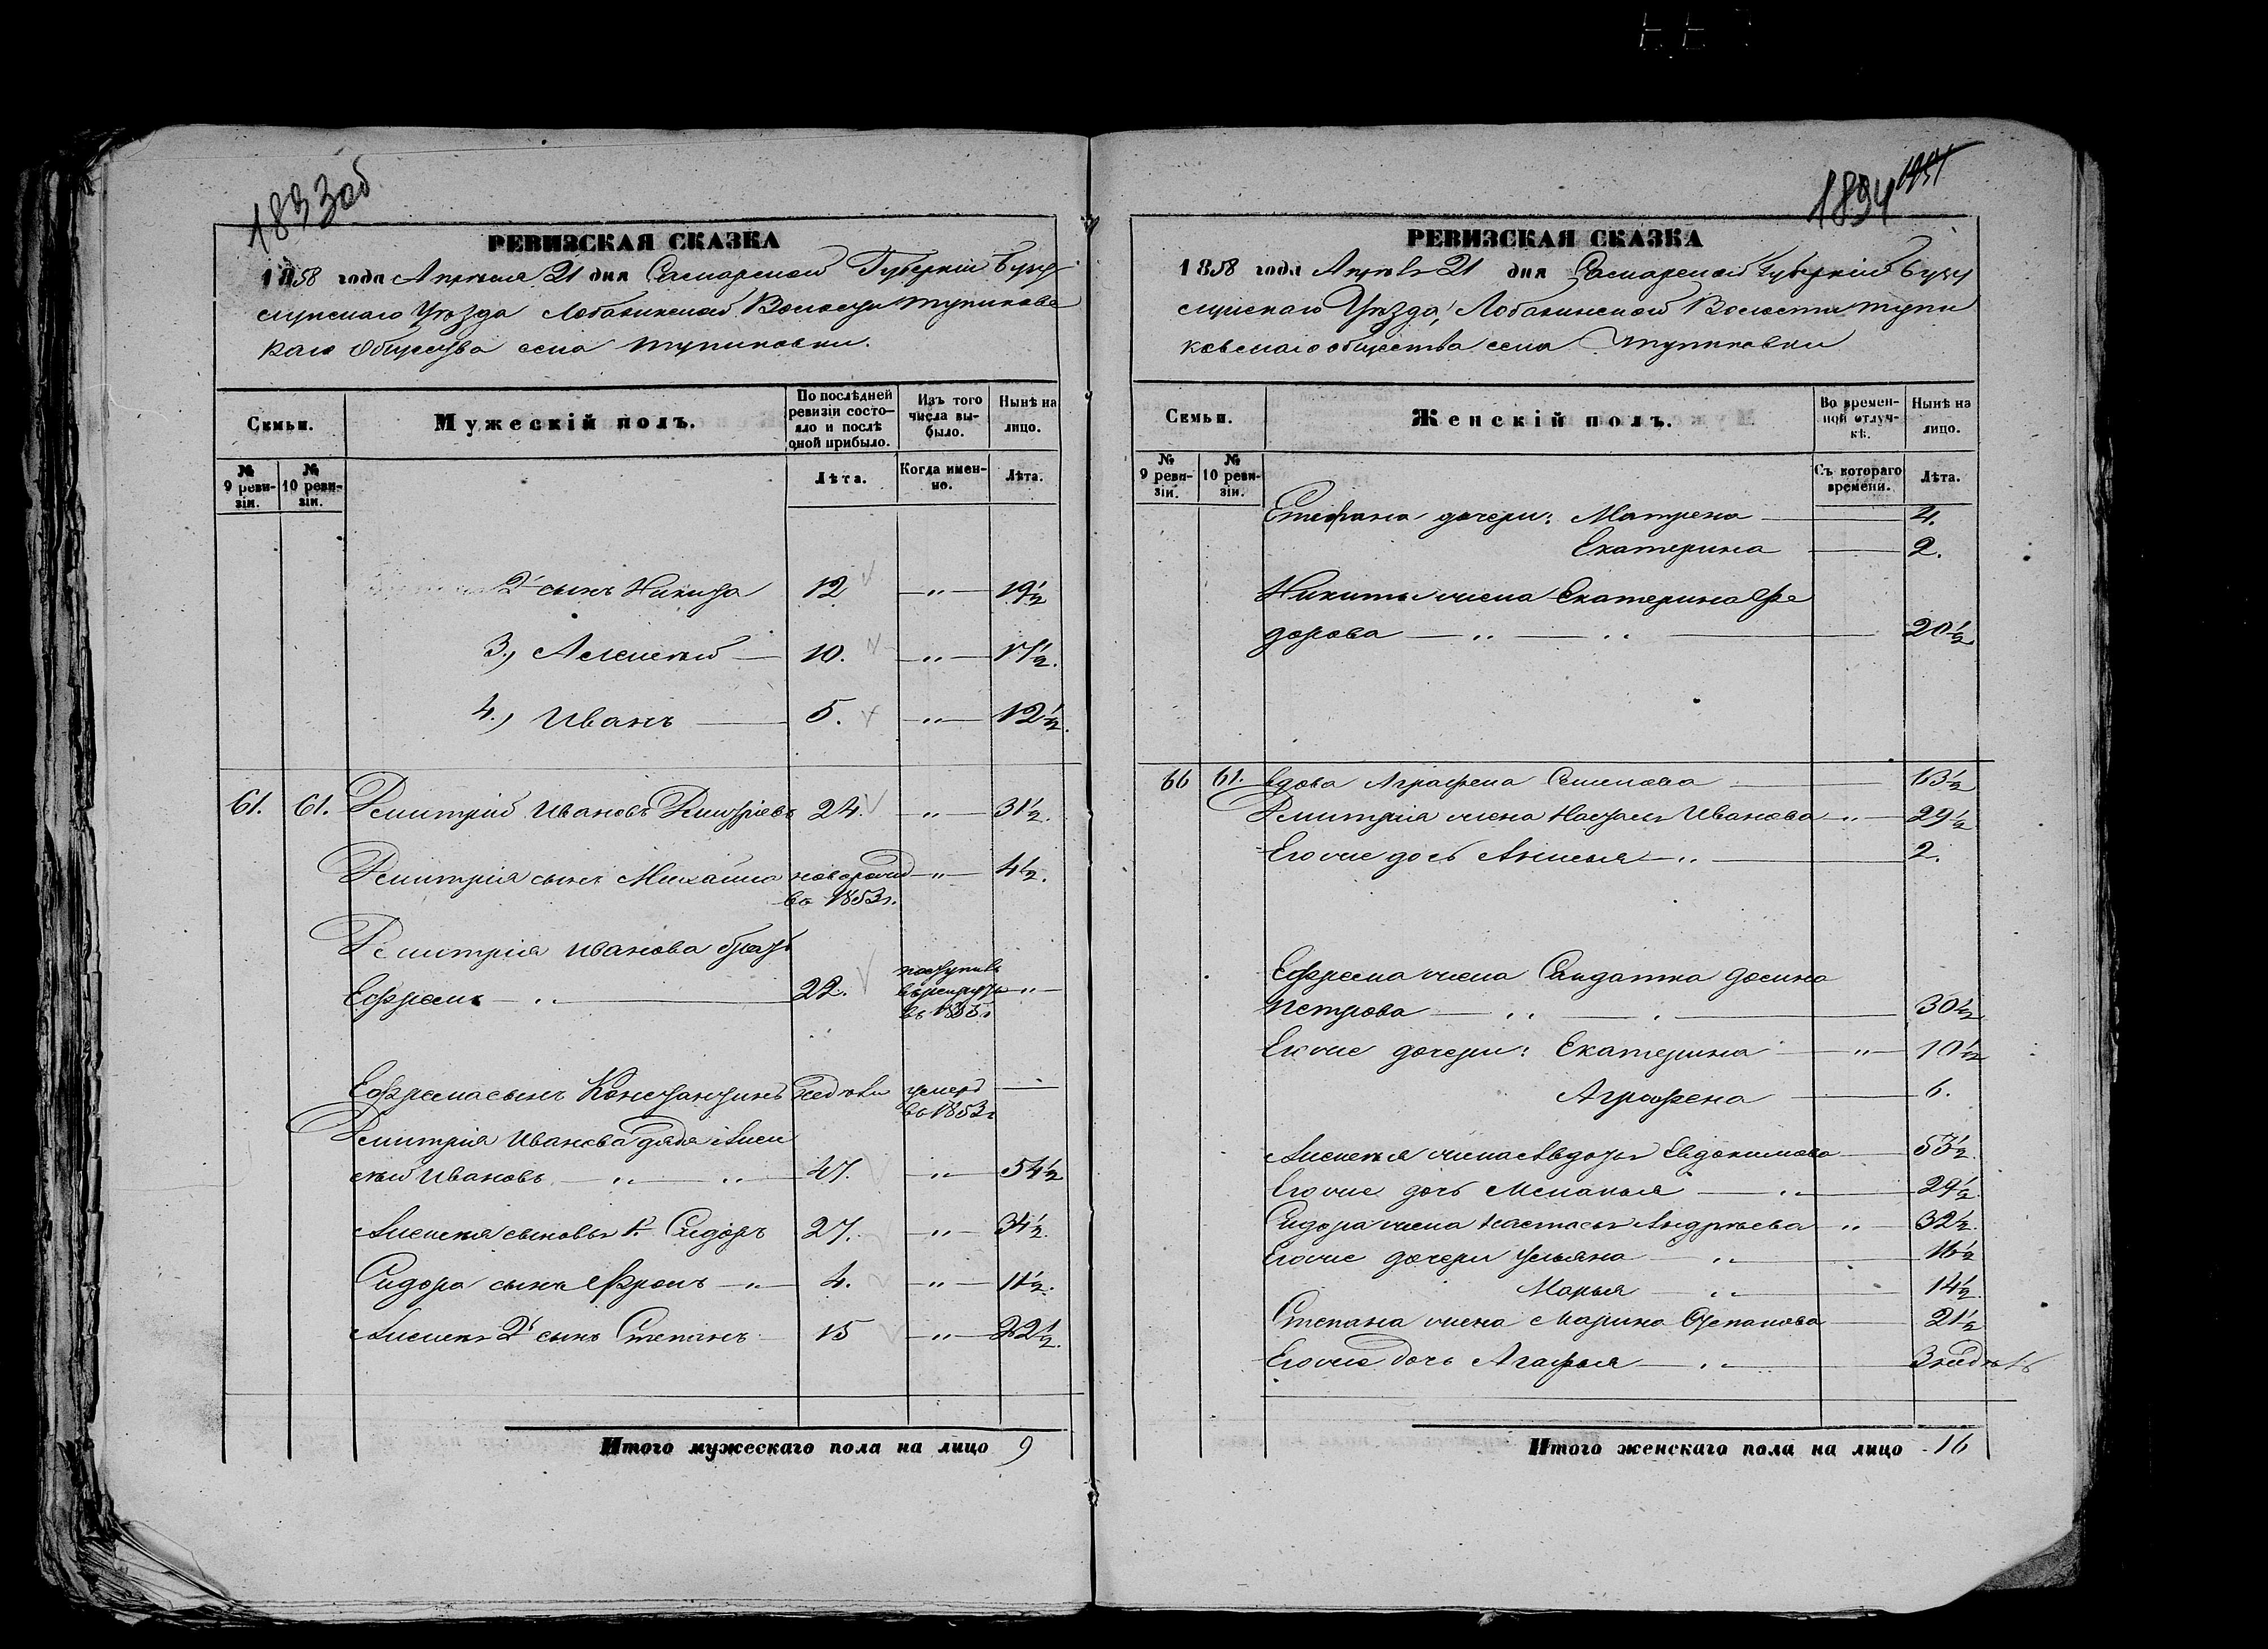 1893 об
РЕВИЗСКАЯ СКАЗКА
1858 года Апреля 21 дня Самарской Губернии Бузу
лукскаго Уезда Лобазинской Волости Тупиковс
каго Общества села Тупиковки.
Семьи.
Мужескій полъ.
По послѣдней ревизіи состо-
яло и послѣ оной прибыло.
Изъ того числа вы-
было.
Нынѣ на лицо.
№ 9 реви-
зіи.
№ 10 реви-
зіи.
Лѣта.
Когда имен-
но.
Лѣта.
2й сынъ Никита 12 — " — 19½
3, Алексѣй — 10. — " — 17½.
4, Иванъ — 5. — " — 12½.
61. 61. Дмитрій Ивановъ Дмитріевъ 24. — " — 31½.
Дмитрія сынъ Михаила новорожд — " — 4½.
въ 1853 г.
Дмитрія Иванова братъ
Ефремъ — " — 22. поступилъ в рекруты въ 1855 — " —
Ефрема сынъ Константинъ недѣли умеръ —
въ 1853 г
Дмитрія Иванова дядя Алек
сѣй Ивановъ — " — " — 47. — " — 54½
Алексѣя сыновья 1й Сидоръ 27. — " — 34½.
Сидора сынъ Фролъ — " — 4. — " — 11½.
Алексѣя 2й сынъ Степанъ 15 — " — 22½.
Итого мужескаго пола на лицо 9
1894
РЕВИЗСКАЯ СКАЗКА
1858 года Апрѣля 21 дня Самарской Губерніи Бузу
лукскаго Уѣзда, Лобазинской Волости Тупи
ковскаго общества села Тупиковки
Семьи.
Женскій полъ.
Во времен-
ной отлуч-
кѣ.
Нынѣ на лицо.
№ 9 реви-
зіи.
№ 10 реви-
зіи.
Съ котораго времени.
Лѣта.
Степана дочери: Матрена — 4.
Екатерина — 2.
Никиты жена Екатерина Фе
дорова — " — " — 20½
66 61. вдова Аграфена Семенова — 13½
Дмитрія жена Настасья Иванова — " — 29½
Его же дочь Анисья — " — 2.
Ефрема жена Солдатка Фекла
Петрова — " — 30½
Его же дочери: Екатерина — " — 10½
Аграфена — 6.
Алексѣя жена Авдотья Евдокимова — 53½
Его же дочь Меланья — " — 29½
Сидора жена Настасья Андрѣева — " — 32½.
Его же дочери Ульяна — " — 16½
Марья — " — 14½
Степана жена Марина Степанова — 21½
Его же дочь Агафья — " — 3 недѣль
Итого женскаго пола на лицо 16